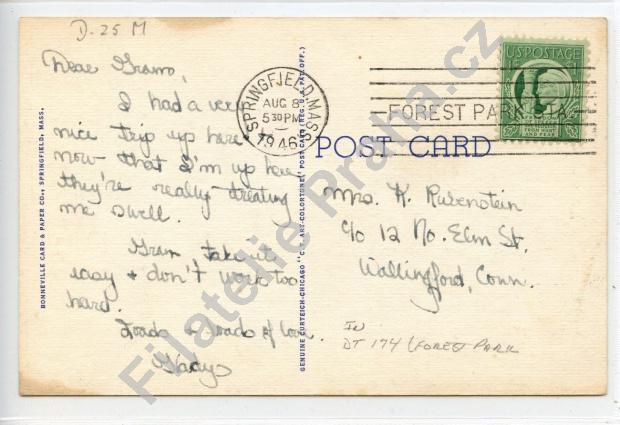 D. 25 M
Dear Gram,
I had a very
nice trip up here
now that I'm up here
they're really treating
me swell.
Gram take it
easy & don't work too
hard.
Loads & loads of love
Gladys
BONNEVILLE CARD & PAPER CO., SPRINGFIELD, MASS.
GENUINE CURTEICH-CHICAGO "C.T. ART-COLORTONE" POST CARD (REG. U.S. PAT. OFF.)
SPRINGFIELD, MASS.
AUG 8
5 30 PM
1946
FOREST PARK STA.
U.S. POSTAGE
1¢
FROM WANT
AND FEAR
POST CARD
Mrs. K. Rubenstein
c/o 12 No. Elm St.
Wallingford, Conn.
IN
DT 174 (FOREST PARK
Filatelie Praha.cz